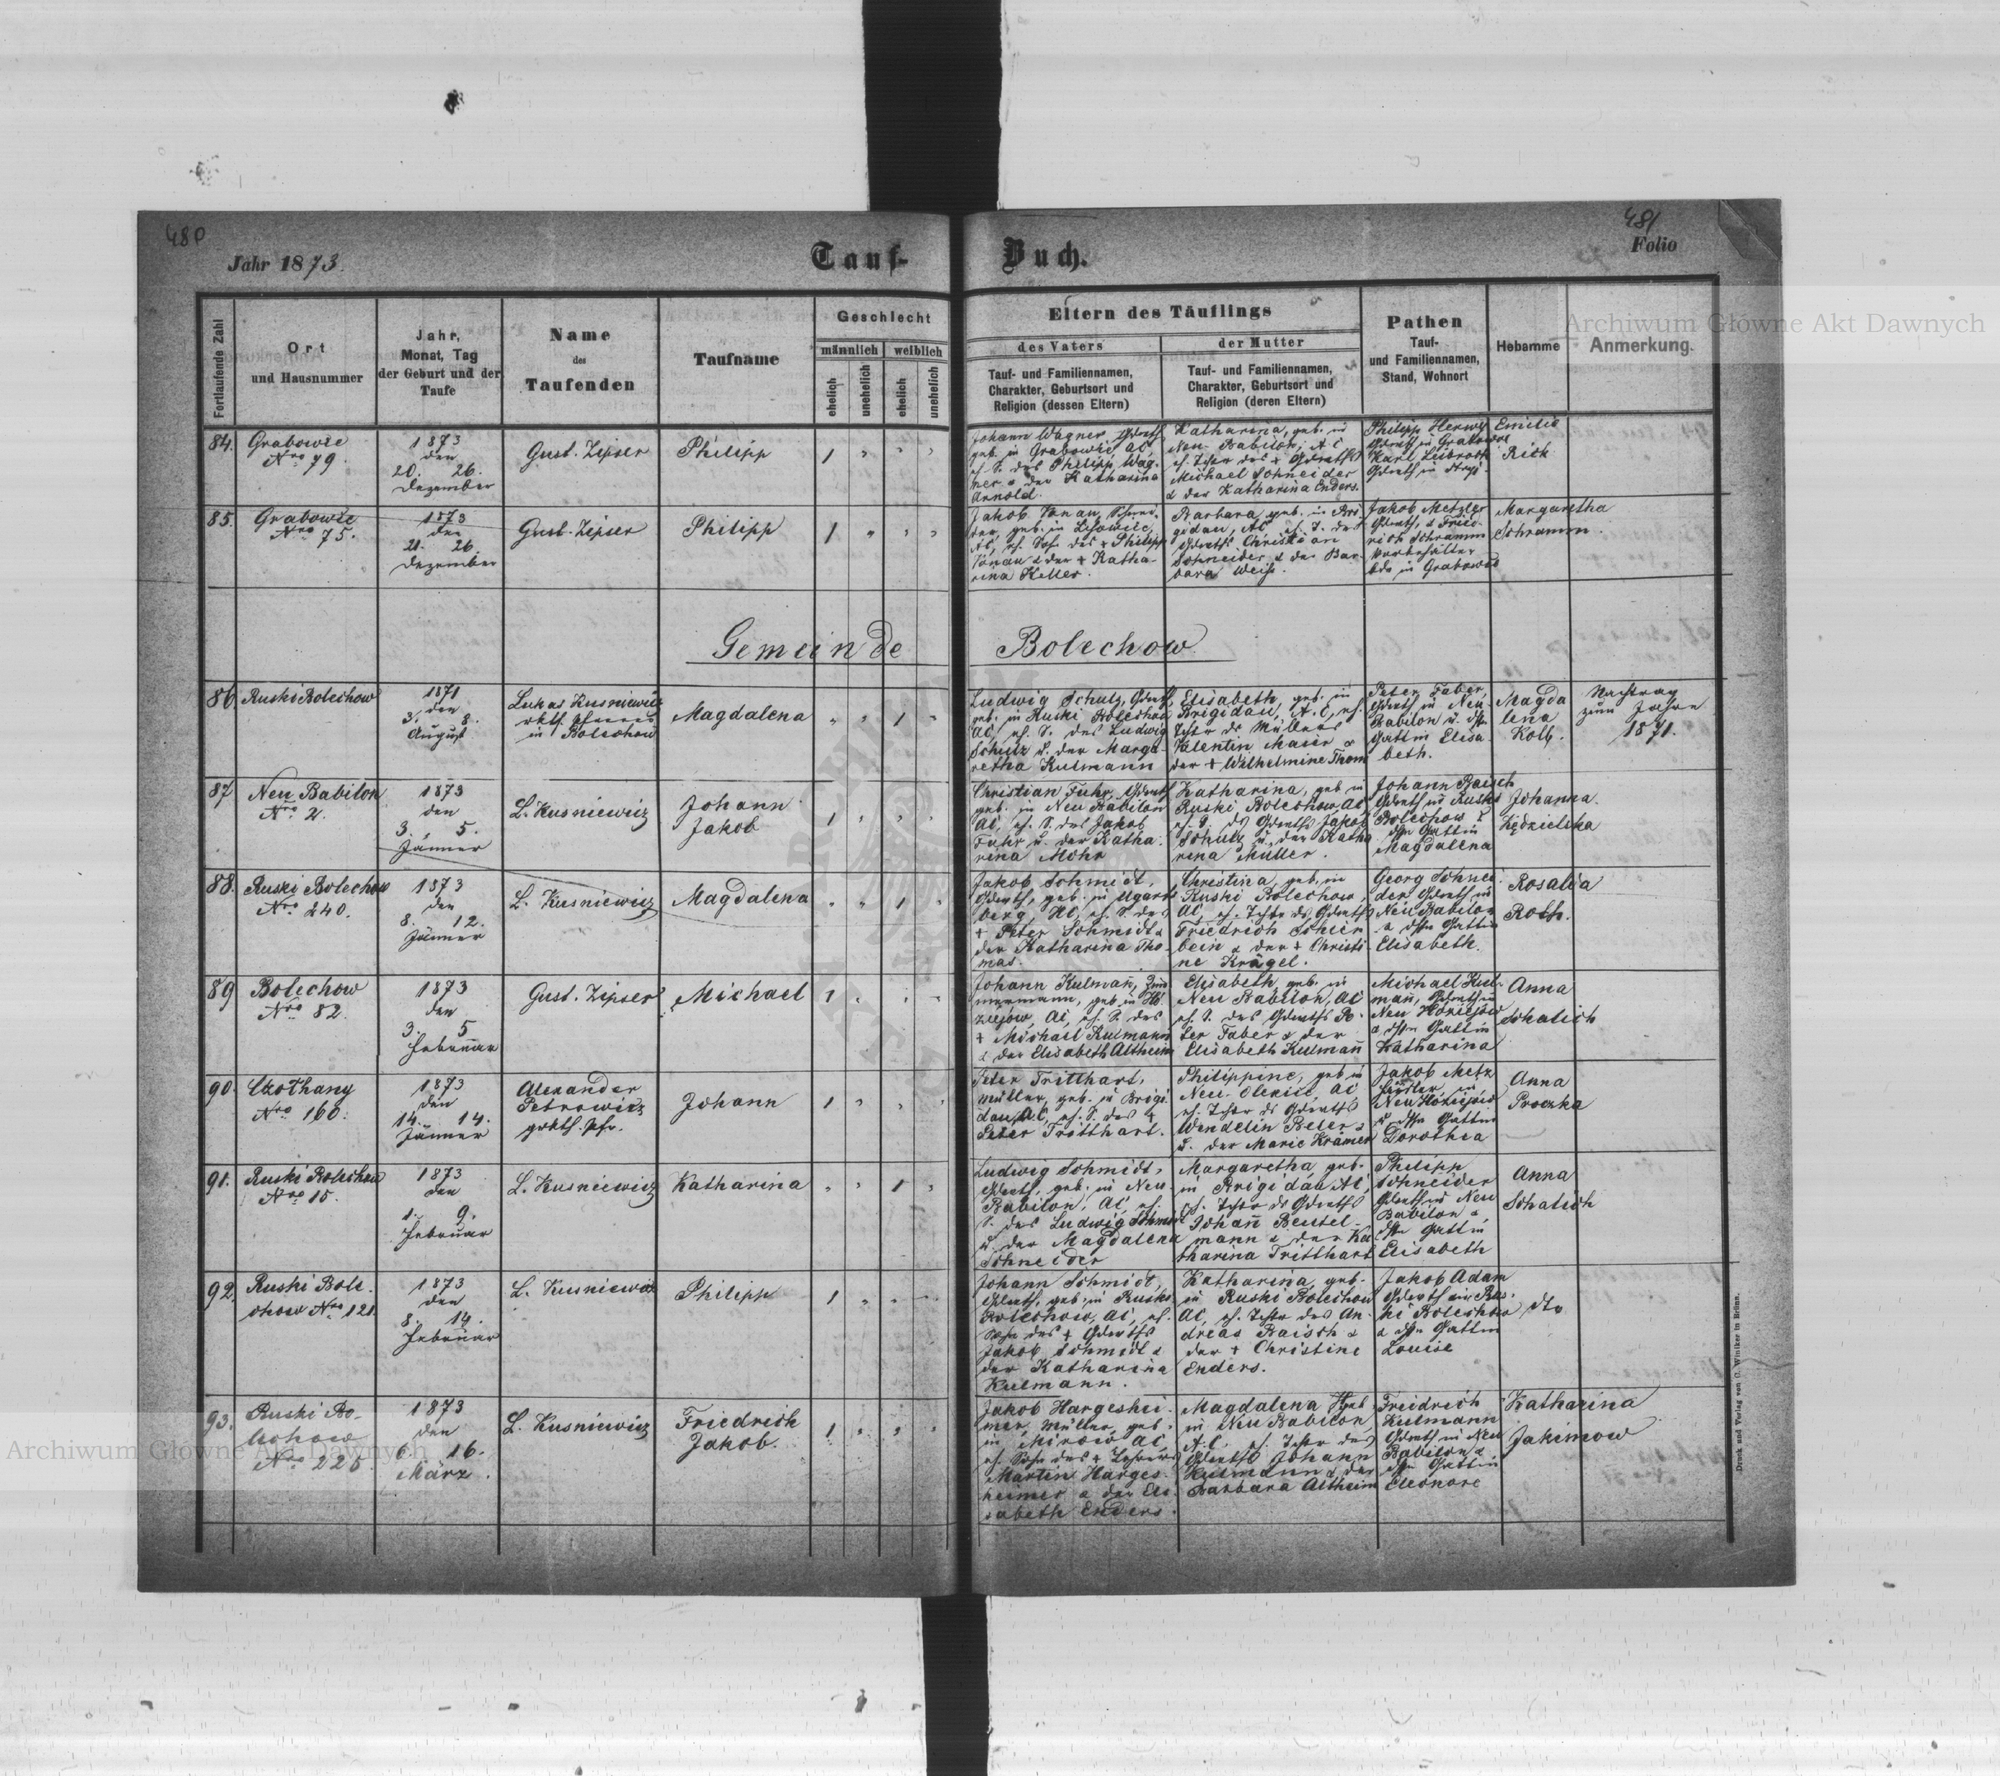 480
481
Jahr 1873.
Tauf-
Buch.
Folio
Archiwum Główne Akt Dawnych
Fortlaufende Zahl
Ort
und Hausnummer
Jahr,
Monat, Tag
der Geburt und der
Taufe
Name
des
Taufenden
Taufname
Geschlecht
männlich
weiblich
ehelich
unehelich
ehelich
unehelich
Eltern des Täuflings
des Vaters
Tauf- und Familiennamen,
Charakter, Geburtsort und
Religion (dessen Eltern)
der Mutter
Tauf- und Familiennamen,
Charakter, Geburtsort und
Religion (deren Eltern)
Pathen
Tauf-
und Familiennamen,
Stand, Wohnort
Hebamme
Anmerkung.
84.
Grabowie
Nro 79.
1873
den
20. 26.
Dezember
Gust. Zipser
Philipp
1 " " "
Johann Wagner,
geb. in Grabowie, AC,
eh. S. des Philipp Wag-
ner & der Katharina
Arnold.
Katharina, geb. in
Neu-Babilon, AC
eh. Tchtr des +
Michael Schneider
& der Katharina Enders.
Philipp Herwy
in Grabowie
Karl
in Stryi.
Emilie
Rick
85.
Grabowie
Nro 75.
1873
den
21. 26.
Dezember
Gust. Zipser
Philipp
1 " " "
Jakob
geb. in
AC, eh. Sohn des + Philipp
& der + Katha-
rina Keller.
Barbara, geb. in Bri-
gidau, AC eh. T. des
Christian
Schneider & der Bar-
bara Weiss.
Jakob Metzler
& Fried-
rich Schramm
in Grabowie
Margaretha
Schramm.
Gemeinde
Bolechow.
86.
Ruski Bolechow
1871
den
3. 8.
August
Lukas Kusniewicz
in Bolechow
Magdalena
" " 1 "
Ludwig Schulz,
geb. in Ruski Bolechow
AC, eh. S. des Ludwig
Schulz u. der Marga-
retha Kulmann
Elisabeth, geb. in
Brigidau, A.C, eh.
Tchtr ds Müllers
Valentin Maier &
der + Wilhelmine Thom
Peter Faber,
in Neu
Babilon u.
Gattin Elisa-
beth.
Magda
lena
Kolb.
Nachtrag
zum Jahre
1871.
87
Neu Babilon
Nro 2.
1873
den
3. 5.
Jänner
L. Kusniewicz
Johann
Jakob
1 " " "
Christian Fuhr,
geb. in Neu Babilon
AC, eh. S. des Jakob
Fuhr u. der Katha-
rina Mohr
Katharina, geb in
Ruski Bolechow, AC
eh. T. ds Jakob
Schulz u. der Katha
rina Müller.
Johann Raisch
in Ruski
Bolechow &
Gattin
Magdalena
Johanna
Kędzielska
88.
Ruski Bolechow
Nro 240.
1873
den
8. 12.
Jänner
L. Kusniewicz
Magdalena
" " 1 "
Jakob Schmidt,
geb. in Ugarts
berg, AC, eh. S. des
+ Peter Schmidt &
der Katharina Tho-
mas.
Christina, geb. in
Ruski Bolechow,
AC, eh. Tchtr ds
Friedrich Schlein-
bein & der + Christi-
ne Krägel.
Georg Schnei-
der in
Neu Babilon
& Gattin
Elisabeth.
Rosalia
Roth.
89
Bolechow
Nro 82.
1873
den
3. 5
Februar
Gust. Zipser
Michael
1 " " "
Johann Kulmañ, Zim
mermann, geb. in Ho-
ziejów, AC, eh. S. des
+ Michael Kulmann
& der Elisabeth Altheim
Elisabeth, geb. in
Neu Babilon, AC
eh. T. des Pe-
ter Faber & der
Elisabeth Kulmañ
Michael Kul-
mañ, in
Neu Hoziejów
& Gattin
Katharina
Anna
Schalich
90.
Nro 160.
1873
den
14. 14.
Jänner
Alexander
Petrowicz
Johann
1 " " "
Peter Tritthart,
Müller, geb. in Brigi-
dau, AC, eh. S. des +
Peter Tritthart.
Philippine, geb in
Neu AC
eh. Tchtr ds
Wendelin
u. der Marie Krämer
Jakob Metz
in
Neu Hoziejów
& Gattin
Dorothea
Anna
Proczka
91.
Ruski Bolechow
Nro 15.
1873
den
1. 9.
Februar
L. Kusniewicz
Katharina
" " 1 "
Ludwig Schmidt,
geb. in Neu
Babilon, AC, eh.
S. des Ludwig Schmidt
u. der Magdalena
Schneider
Margaretha geb.
in Brigidau AC,
eh. Tchtr ds
Johañ Beutel-
mann & der Ka-
tharina Tritthart
Philipp
Schneider
in Neu
Babilon &
Gattin
Elisabeth
Anna
Schalich
92.
Ruski Bole-
chow Nro 121.
1873
den
8. 14.
Februar
L. Kusniewicz
Philipp
1 " " "
Johann Schmidt,
geb. in Ruski
Bolechow, AC, eh.
Sohn des +
Jakob Schmidt &
der Katharina
Kulmann.
Katharina, geb.
in Ruski Bolechow
AC, eh. Tchtr des An-
dreas Raisch &
der + Christine
Enders.
Jakob Adam
in Rus-
ki Bolechow
& Gattin
Louise
dto
93.
Ruski Bo-
lechow
Nro 226.
1873
den
6. 16.
März.
L. Kusniewicz
Friedrich
Jakob.
1 " " "
Jakob Hargeshei-
mer, Müller, geb.
in Mirow AC,
eh. Sohn des + Lehrers
Martin Harges-
heimer & der Eli-
sabeth Enders.
Magdalena geb
in Neu Babilon,
A.C. eh. Tchtr des
Johann
Kulmann & der
Barbara Altheim
Friedrich
Kulmann
in Neu
Babilon &
Gattin
Eleonore
Katharina
Jakimow
Archiwum Główne Akt Dawnych
Druck und Verlag von C. Winiker in Brünn.